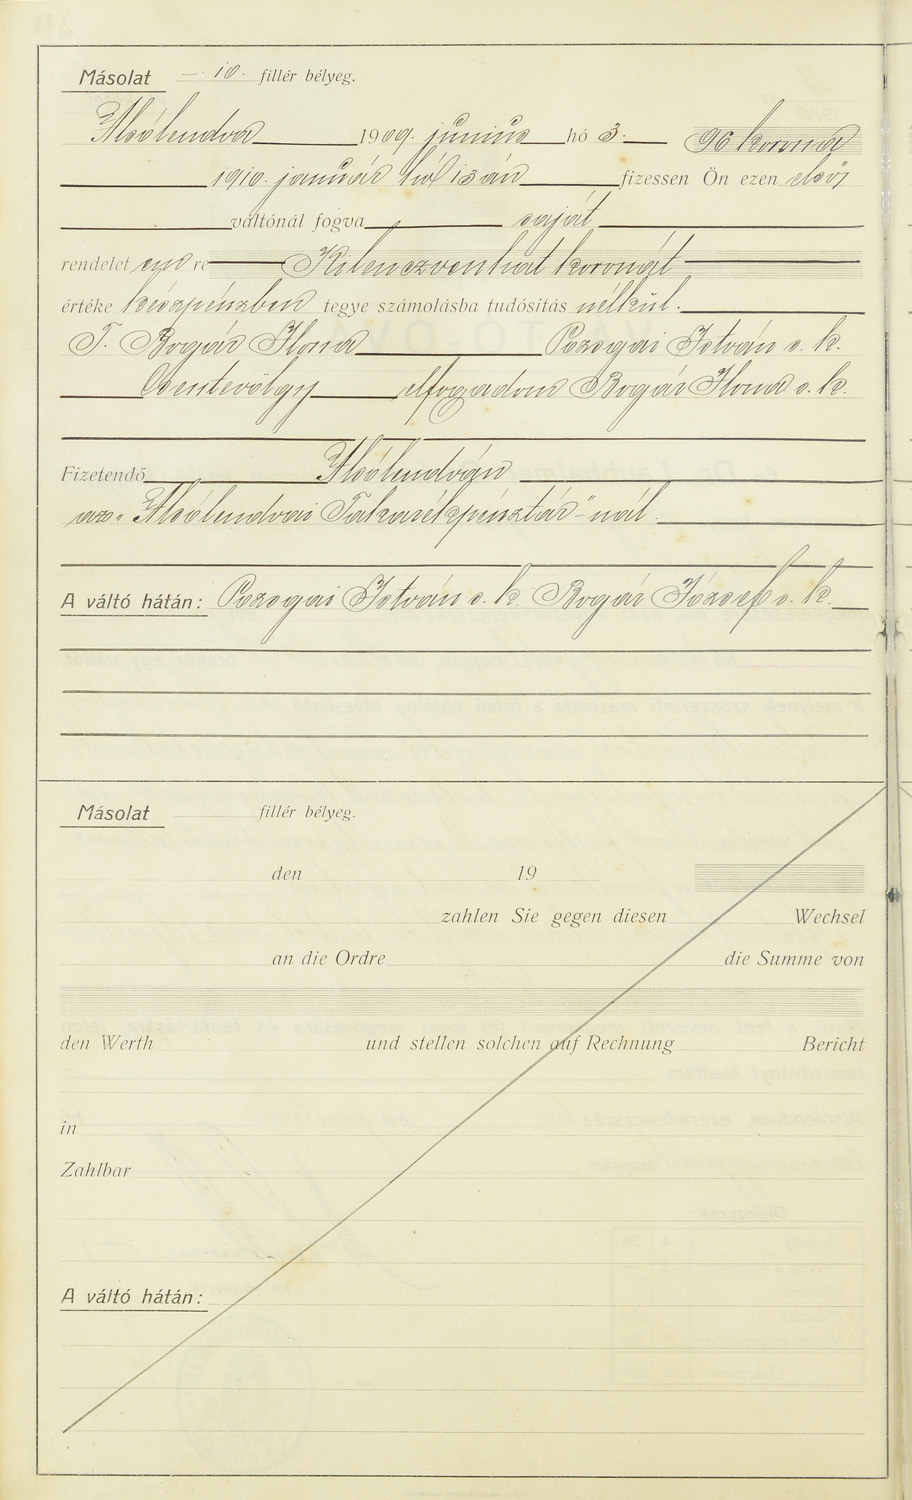 Másolat — 10. fillér bélyeg.
Alsólendva 1909. junius hó 3. 96 korona
1910. január hó 13 án fizessen Ön ezen első
váltónál fogva saját
rendelet em re Kilenczvenhat koronát
értéke készpénzben tegye számolásba tudósítás nélkül.
T. Bogár Ilona Pozsgai István s. k.
Csentevölgy elfogadom Bogár Ilona s. k.
Fizetendő Alsólendván
az „Alsólendvai Takarékpénztár"-nál.
A váltó hátán: Pozsgai István s. k. Bogár József s. k.
Másolat fillér bélyeg.
den 19
zahlen Sie gegen diesen Wechsel
an die Ordre die Summe von
den Werth und stellen solchen auf Rechnung Bericht
in
Zahlbar
A váltó hátán: